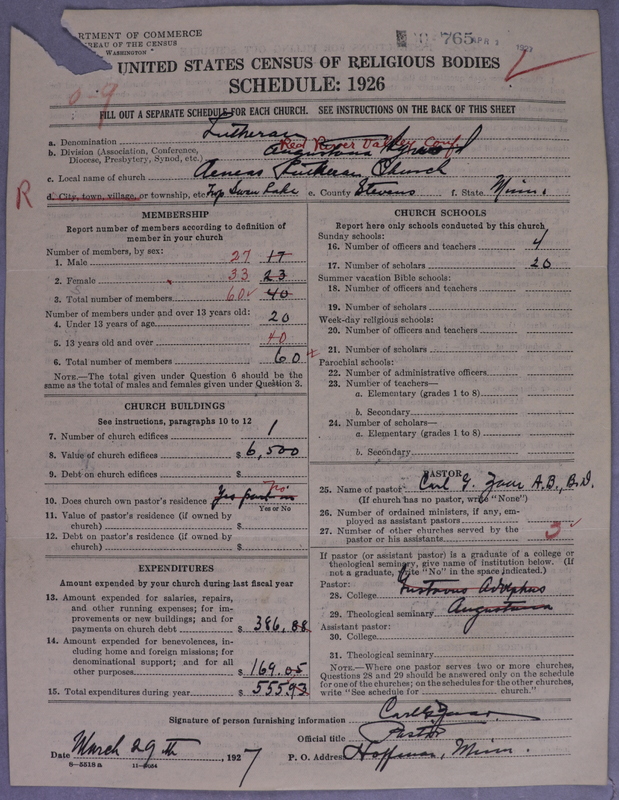 RTMENT OF COMMERCE
BUREAU OF THE CENSUS
WASHINGTON
765 APR 2 1927
UNITED STATES CENSUS OF RELIGIOUS BODIES
SCHEDULE: 1926
FILL OUT A SEPARATE SCHEDULE FOR EACH CHURCH. SEE INSTRUCTIONS ON THE BACK OF THIS SHEET
a. Denomination Lutheran
b. Division (Association, Conference, Diocese, Presbytery, Synod, etc.) Augustana Synod Red River Valley Conf.
c. Local name of church Aeneas Lutheran Church
R
d. City, town, village, or township, etc. Twp Swan Lake e. County Stevens f. State Minn.
MEMBERSHIP
Report number of members according to definition of
member in your church
Number of members, by sex:
1. Male 27 17
2. Female 33 23
3. Total number of members 60 40
Number of members under and over 13 years old:
4. Under 13 years of age 20
5. 13 years old and over 40
6. Total number of members 60
NOTE.—The total given under Question 6 should be the
same as the total of males and females given under Question 3.
CHURCH BUILDINGS
See instructions, paragraphs 10 to 12
7. Number of church edifices 1
8. Value of church edifices $ 6,500
9. Debt on church edifices $
10. Does church own pastor's residence Yes part in No
Yes or No
11. Value of pastor's residence (if owned by
church) $
12. Debt on pastor's residence (if owned by
church) $
EXPENDITURES
Amount expended by your church during last fiscal year
13. Amount expended for salaries, repairs,
and other running expenses; for im-
provements or new buildings; and for
payments on church debt $ 386.88
14. Amount expended for benevolences, in-
cluding home and foreign missions; for
denominational support; and for all
other purposes $ 169.05
15. Total expenditures during year $ 555.93
CHURCH SCHOOLS
Report here only schools conducted by this church
Sunday schools:
16. Number of officers and teachers 4
17. Number of scholars 20
Summer vacation Bible schools:
18. Number of officers and teachers
19. Number of scholars
Week-day religious schools:
20. Number of officers and teachers
21. Number of scholars
Parochial schools:
22. Number of administrative officers
23. Number of teachers—
a. Elementary (grades 1 to 8)
b. Secondary
24. Number of scholars—
a. Elementary (grades 1 to 8)
b. Secondary
PASTOR
25. Name of pastor Carl G. A.B., B.D.
(If church has no pastor, write "None")
26. Number of ordained ministers, if any, em-
ployed as assistant pastors
27. Number of other churches served by the
pastor or his assistants 3
If pastor (or assistant pastor) is a graduate of a college or
theological seminary, give name of institution below. (If
not a graduate, write "No" in the space indicated.)
Pastor:
28. College Gustavus Adolphus
29. Theological seminary Augustana
Assistant pastor:
30. College
31. Theological seminary
NOTE.—Where one pastor serves two or more churches,
Questions 28 and 29 should be answered only on the schedule
for one of the churches; on the schedules for the other churches,
write "See schedule for church."
Signature of person furnishing information Carl G.
Official title Pastor
Date March 29th, 1927 P. O. Address Hoffman, Minn.
8-5518a 11-9034